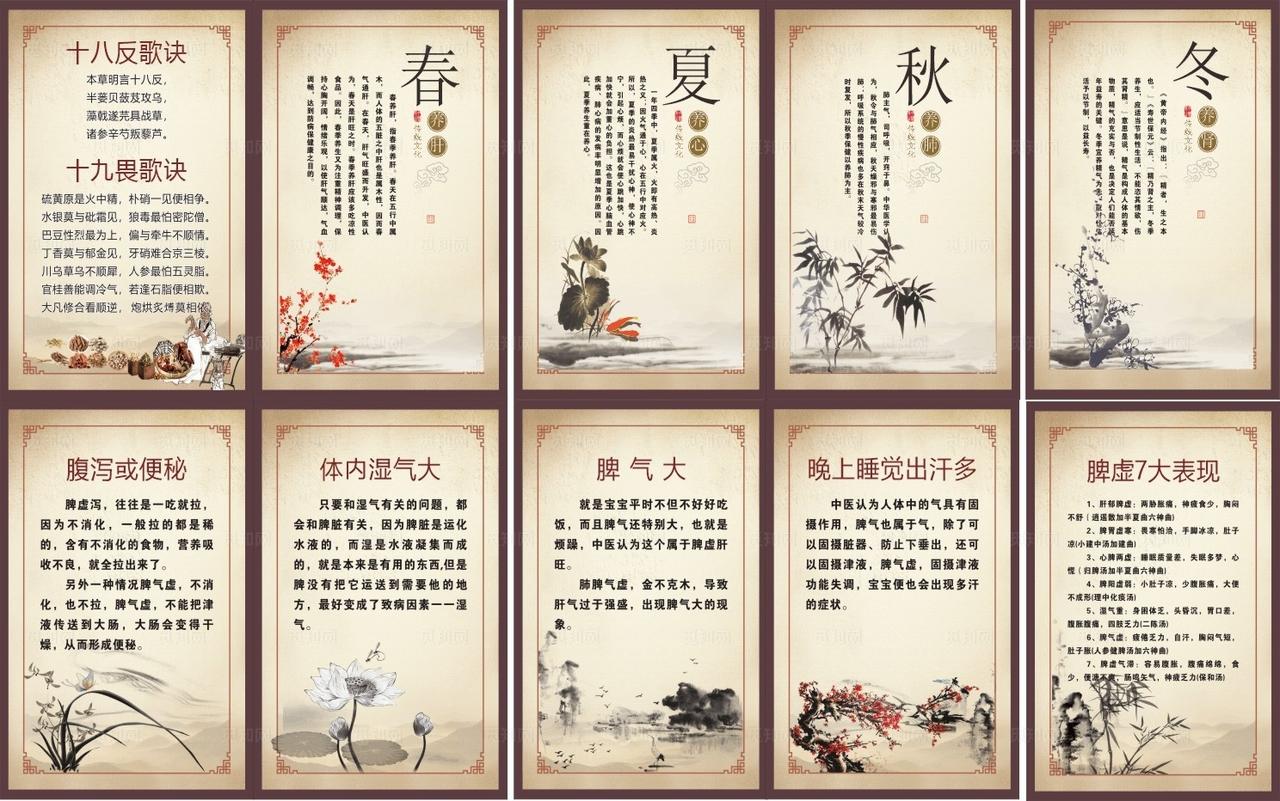 十八反歌诀
本草明言十八反，
半蒌贝蔹芨攻乌，
藻戟遂芫具战草，
诸参辛芍叛藜芦。
十九畏歌诀
硫黄原是火中精，朴硝一见便相争。
水银莫与砒霜见，狼毒最怕密陀僧。
巴豆性烈最为上，偏与牵牛不顺情。
丁香莫与郁金见，牙硝难合京三棱。
川乌草乌不顺犀，人参最怕五灵脂。
官桂善能调冷气，若逢石脂便相欺。
大凡修合看顺逆，炮烘炙煿莫相依。
春
养肝
传统文化
春养肝，指春季养肝。春天在五行中属
木，而人体的五脏之中肝也是属木性，因而春
气通肝。在春天，肝气旺盛而升发，中医认
为，春天是肝旺之时，春季养肝应该多吃凉性
食品。因此，春季养生又为注重精神调理，保
持心胸开阔，情绪乐观，以使肝气顺达，气血
调畅，达到防病保健康之目的。
夏
养心
传统文化
一年四季中，夏季属火，火即有高热、炎
热之义；因火气通于心，心在五行中对应火。
所以，夏季的炎热最易干扰心神，使心神不
宁，引起心烦，而心烦就会使心跳加快，心跳
加快就会加重心的负担。这也是夏季心脑血管
疾病、肺心病的发病率明显增加的原因。因
此，夏季养生重在养心。
秋
养肺
传统文化
肺主气，司呼吸，开窍于鼻。中华医学认
为，秋令与肺气相应，秋天燥邪与寒邪最易伤
肺；呼吸系统的慢性疾病也多在秋末天气较冷
时复发，所以秋季保健以养肺为主。
冬
养肾
传统文化
《黄帝内经》指出："精者，生之本
也。"《寿世保元》云："精乃肾之主，冬季
养生，应适当节制性生活，不能恣其情欲，伤
其肾精。"意思是说，精气是构成人体的基本
物质，精气的充实与否，也是决定人们能否延
年益寿的关键。冬季宜养精气为先，
活予以节制，以益长寿。
腹泻或便秘
脾虚泻，往往是一吃就拉，
因为不消化，一般拉的都是稀
的，含有不消化的食物，营养吸
收不良，就全拉出来了。
另外一种情况脾气虚，不消
化，也不拉，脾气虚，不能把津
液传送到大肠，大肠会变得干
燥，从而形成便秘。
体内湿气大
只要和湿气有关的问题，都
会和脾脏有关，因为脾脏是运化
水液的，而湿是水液凝集而成
的，就是本来是有用的东西,但是
脾没有把它运送到需要他的地
方，最好变成了致病因素一一湿
气。
脾气大
就是宝宝平时不但不好好吃
饭，而且脾气还特别大，也就是
烦躁，中医认为这个属于脾虚肝
旺。
肺脾气虚，金不克木，导致
肝气过于强盛，出现脾气大的现
象。
晚上睡觉出汗多
中医认为人体中的气具有固
摄作用，脾气也属于气，除了可
以固摄脏器、防止下垂出，还可
以固摄津液，脾气虚，固摄津液
功能失调，宝宝便也会出现多汗
的症状。
脾虚7大表现
1、肝郁脾虚：两胁胀痛，神疲食少，胸闷
不舒（逍遥散加半夏曲六神曲)
2、脾肾虚寒：畏寒怕冷，手脚冰凉，肚子
凉(小建中汤加建曲)
3、心脾两虚：睡眠质量差，失眠多梦，心
慌（归脾汤加半夏曲六神曲)
4、脾阳虚弱：小肚子凉，少腹胀痛，大便
不成形(理中化痰汤)
5、湿气重：身困体乏，头昏沉，胃口差，
腹胀腹痛，四肢乏力(二陈汤)
6、脾气虚：疲倦乏力，自汗，胸闷气短，
肚子胀(人参健脾汤加六神曲)
7、脾虚气滞：容易腹胀，腹痛绵绵，食
少，便溏不爽，肠鸣矢气，神疲乏力(保和汤)